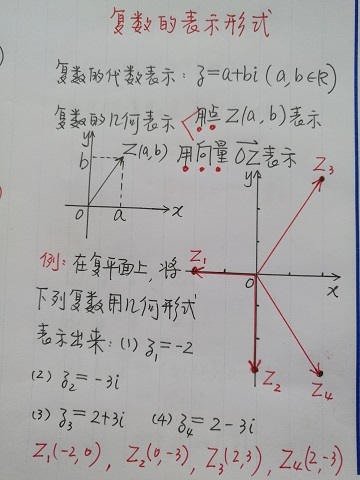 复数的表示形式
复数的代数表示：z=a+bi (a,b∈R)
复数的几何表示 用点 Z(a,b)表示
用向量 OZ→ 表示
y
b
Z(a,b)
0
a
x
y
Z3
Z1
0
x
Z2
Z4
例：在复平面上，将
下列复数用几何形式
表示出来：(1) z1=-2
(2) z2=-3i
(3) z3=2+3i (4) z4=2-3i
Z1(-2,0), Z2(0,-3), Z3(2,3), Z4(2,-3)